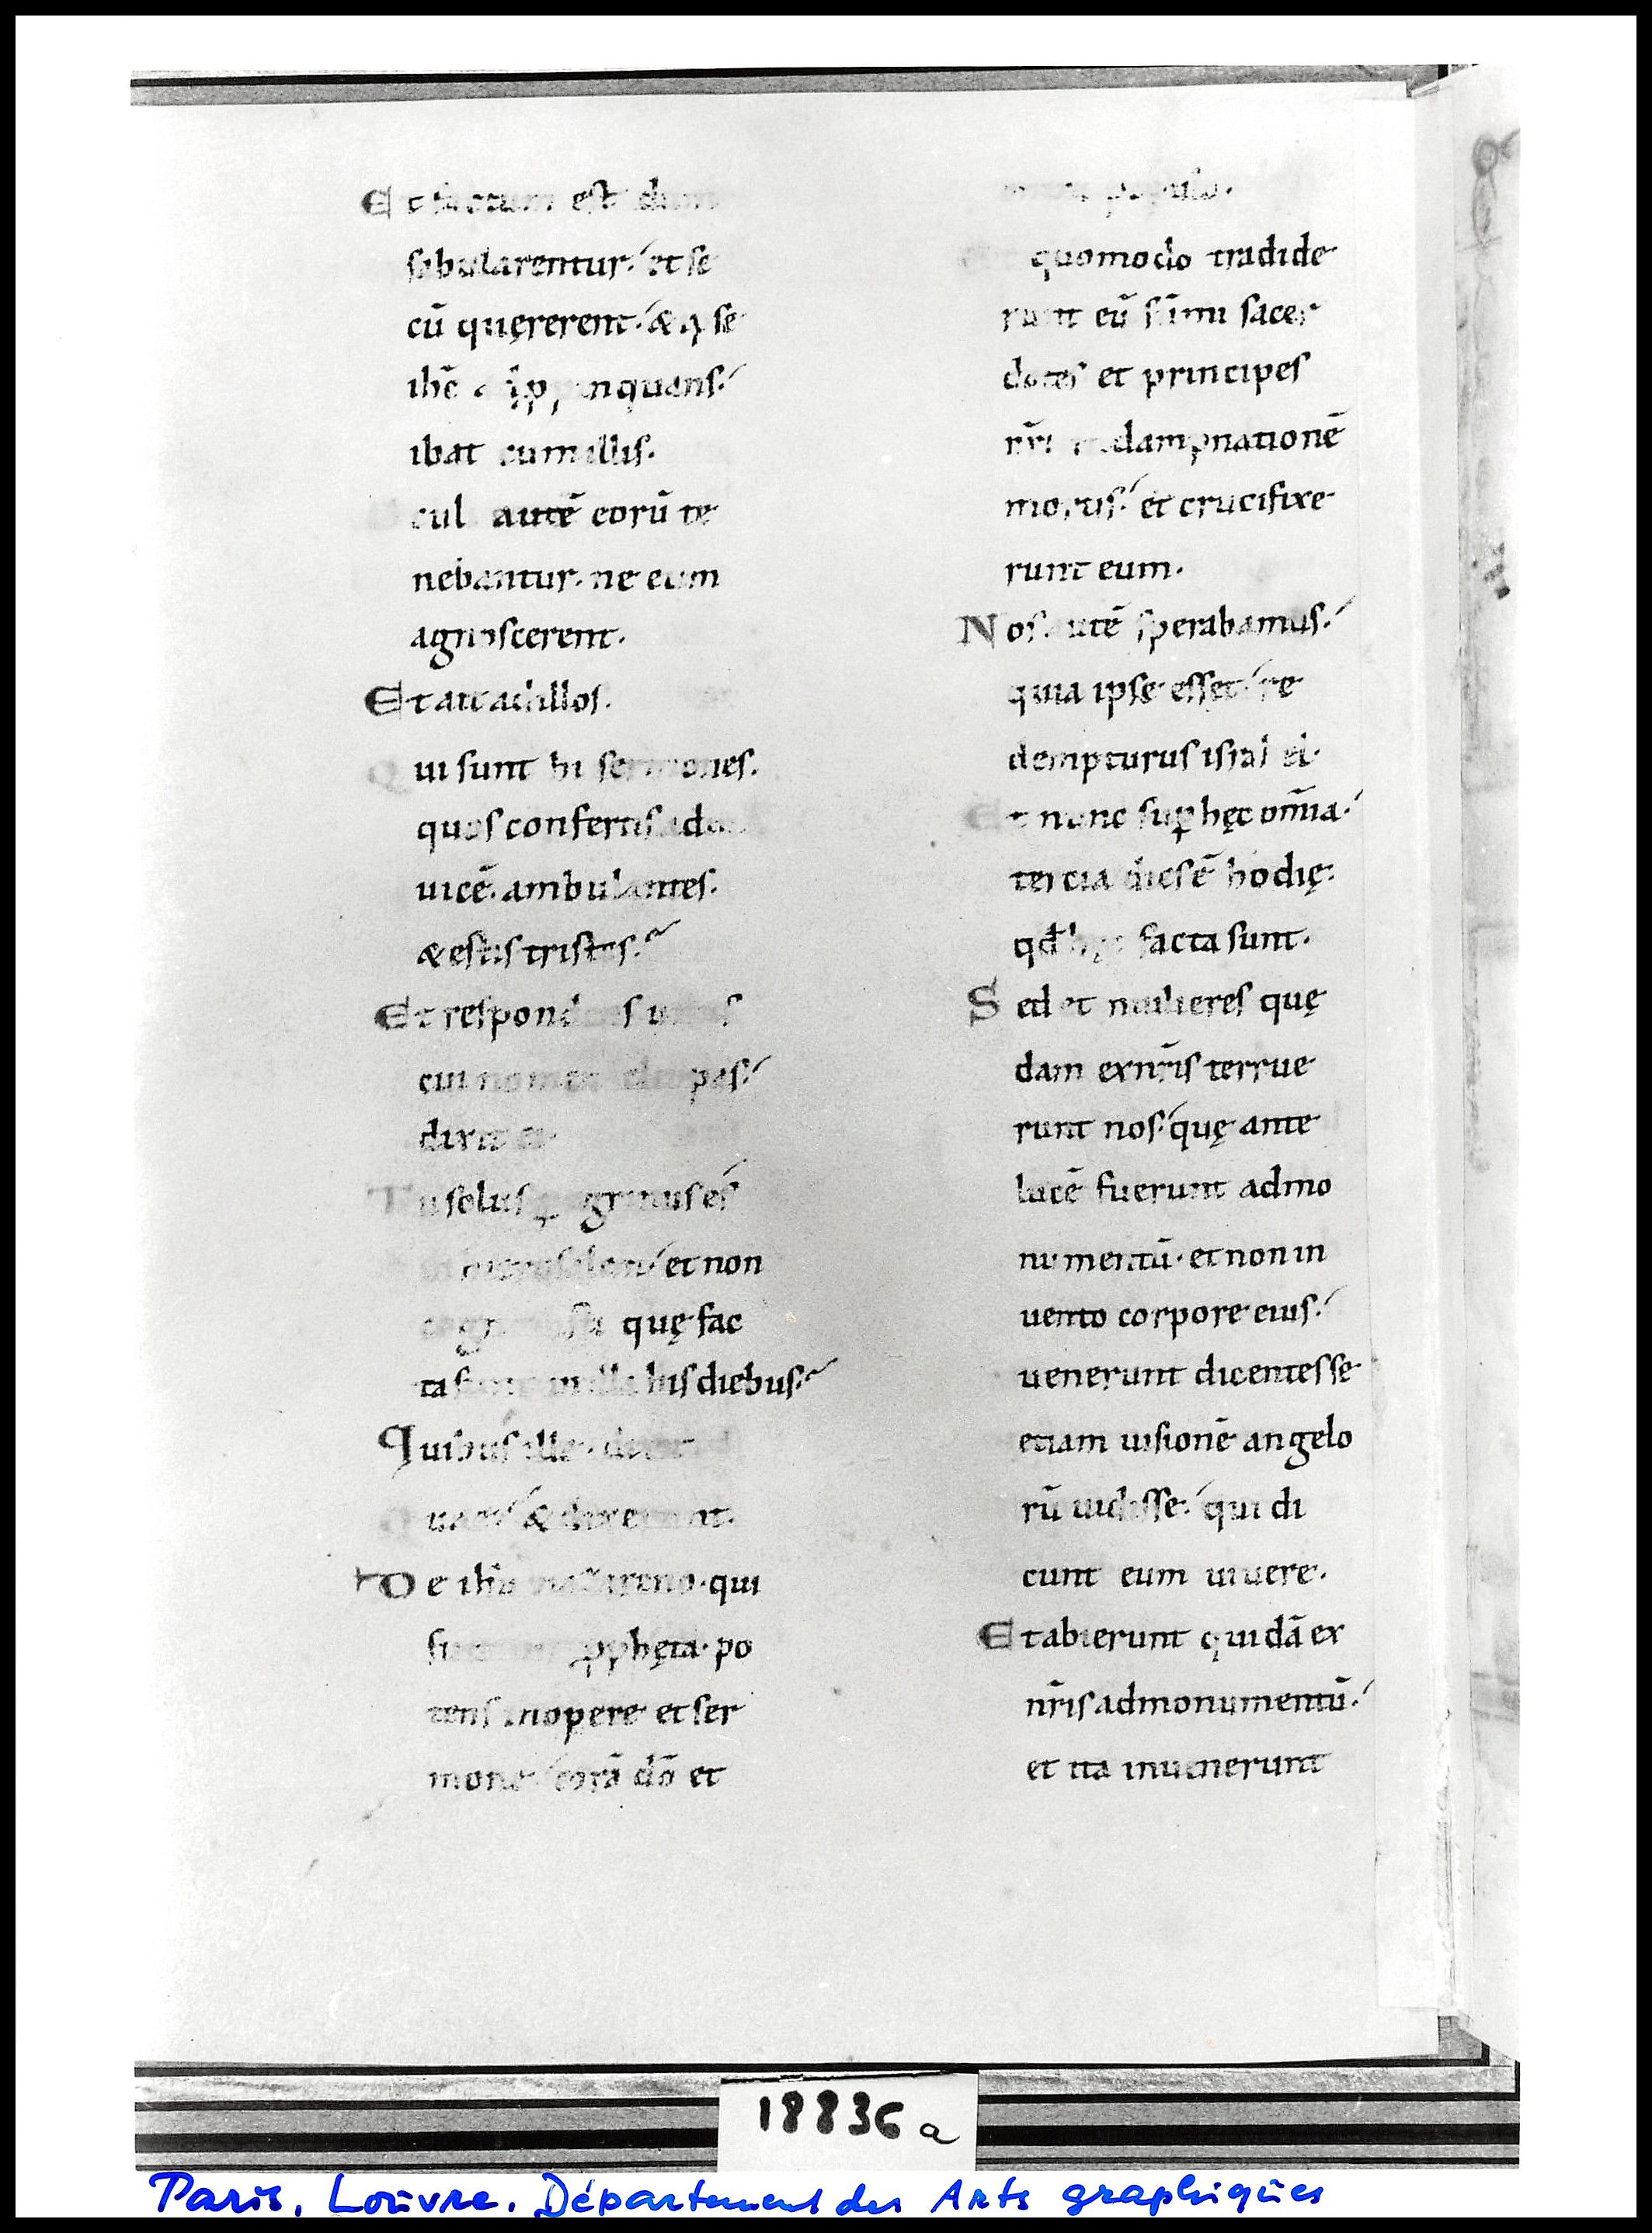 Et factum est dum
fabularentur. et se
cū quęrerent. & ipse
ihc̄
ibat cum illis.
autē eorū te
nebantur. ne eum
agnoscerent.
Et ait ad illos.
Qui sunt hi sermones.
quos confertis ad
uicē. ambulantes.
& estis tristes.
Et respondens unus
cui nomen cleopas.
dixit ei.
Tu solus es
et non
quę fac
ta sunt in illa his diebus.
Quibus ille. dixit
Quae & dixerunt.
De ihu nazareno. qui
ꝓphęta. po
tens in opere et ser
mone corā dō et
populo.
quomodo tradide
runt eū sūmi sacer
dotes et principes
nr̄i dampnationē
mortis. et crucifixe
runt eum.
Nos autē sperabamus.
quia ipse esset re
dempturus isrł
Et nunc suꝑ hęc om̄ia.
tercia dies ē hodię.
qđ hęc facta sunt.
Sed et mulieres quę
dam ex nr̄is terrue
runt nos. quę ante
lucē fuerunt ad mo
numentū. et non in
uento corpore eius.
uenerunt dicentes se
etiam uisionē angelo
rū uidisse. qui di
cunt eum uiuere.
Et abierunt quidā ex
nr̄is ad monumentū.
et ita inuenerunt
18836a
Paris, Louvre. Département des Arts graphiques